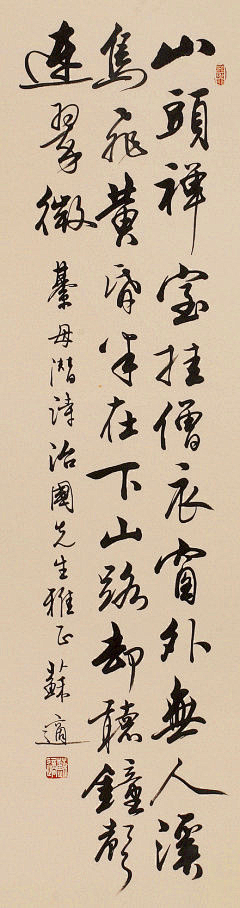 山頭禪室挂僧衣窗外無人溪
鳥飛黃昏半在下山路却聽鐘聲
連翠微 綦母潛詩治國先生雅正 蘇適